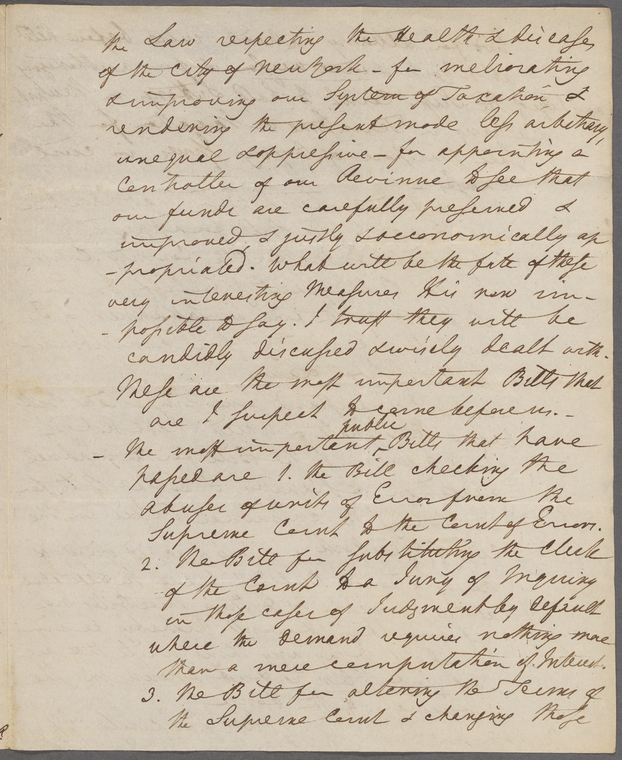 the Law respecting the Health & diseases
of the City of New York – for meliorating
& improving our System of Taxation &
rendering the present mode less arbitrary,
unequal & oppressive – for appointing a
Controller of our Revinue to see that
our funds are carefully preserved &
improved, & justly & oeconomically ap
-propriated. What will be the fate of these
very interesting Measures it is now im-
-possible to say. I trust they will be
candidly discussed & wisely dealt with.
These are the most important Bills that
are I suspect to come before us. –
– The most important public Bills that have
passed are 1. the Bill checking the
abuses of writs of Error from the
Supreme Court to the Court of Errors.
2. The Bill for substituting the Clerk
of the Court to a Jury of Inquiry
in those cases of Judgment by default
where the demand requires nothing more
than a mere computation of Interest.
3. The Bill for altering the Terms of
the Supreme Court & changing those